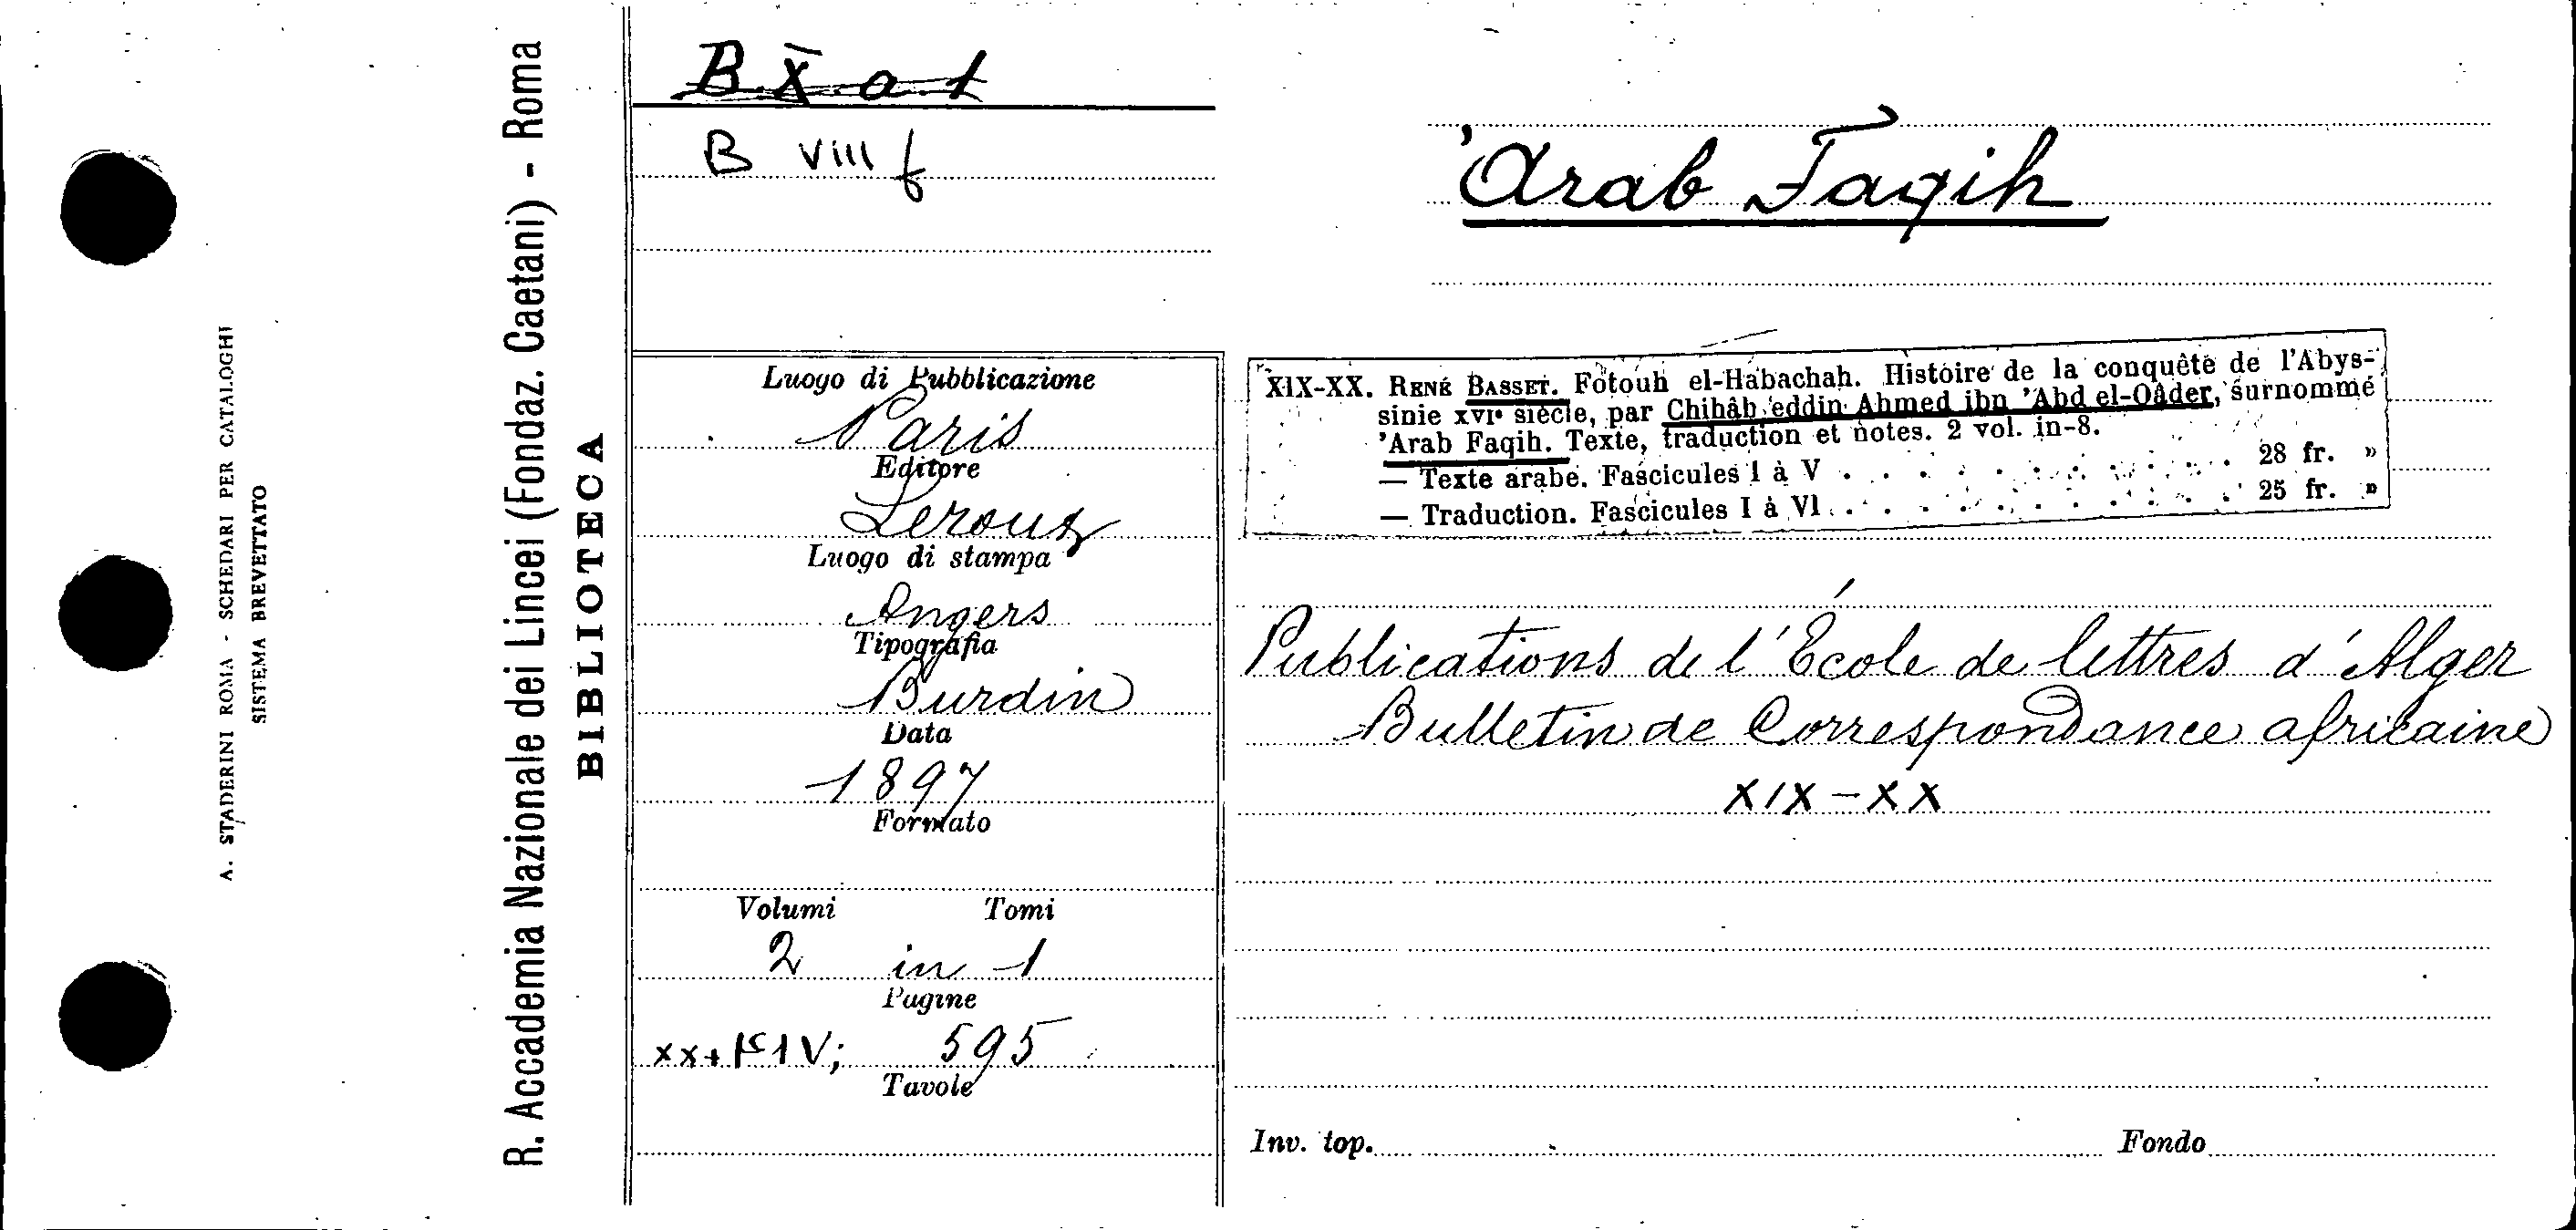 A. STADERINI ROMA - SCHEDARI PER CATALOGHI
SISTEMA BREVETTATO
R. Accademia Nazionale dei Lincei (Fondaz. Caetani) - Roma
BIBLIOTECA
B. X. a. 1
B VIII f
Luogo di Pubblicazione
Paris
Editore
Leroux
Luogo di stampa
Angers
Tipografia
Burdin
Data
1897
Formato
Volumi Tomi
2 in 1
Pagine
595
Tavole
'Arab Faqih
XIX-XX. RENÉ BASSET. Fotouh el-Habachah. Histoire de la conquête de l'Abys-
sinie XVIe siècle, par Chihâb eddin Ahmed ibn 'Abd el-Qâder, surnommé
'Arab Faqih. Texte, traduction et notes. 2 vol. in-8.
— Texte arabe. Fascicules I à V . . . . . . . . . . . 28 fr. »
— Traduction. Fascicules I à VI . . . . . . . . . . . 25 fr. »
Publications de l'École de lettres d'Alger
Bulletin de Correspondance africaine
XIX-XX
Inv. top. Fondo